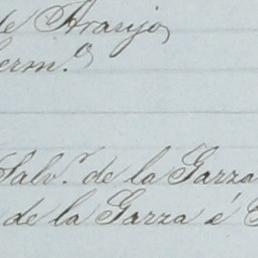 de Araujo
Germ.º
Salv.r de la Garza
de la Garza é